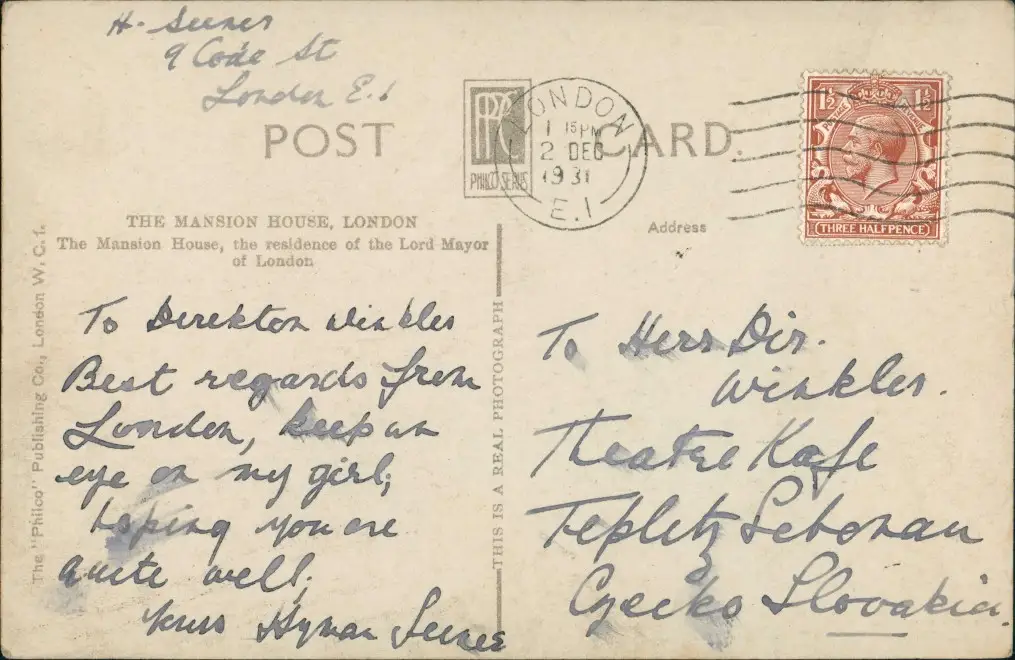 H. Seener
9 Code St
London E.1
POST CARD.
PHILCO SERIES
LONDON
1 15 PM
2 DEC
1931
E.1
1½ 1½
POSTAGE REVENUE
THREE HALFPENCE
THE MANSION HOUSE, LONDON
The Mansion House, the residence of the Lord Mayor
of London
Address
The "Philco" Publishing Co., London W.C.1.
THIS IS A REAL PHOTOGRAPH
To Direktor Winkler
Best regards from
London, keep an
eye on my girl,
hoping you are
quite well,
Yours Hyman Seener
To Herr Dir.
Winkler.
Theatre Kafe
Teplitz Schonau
Czecko Slovakia.